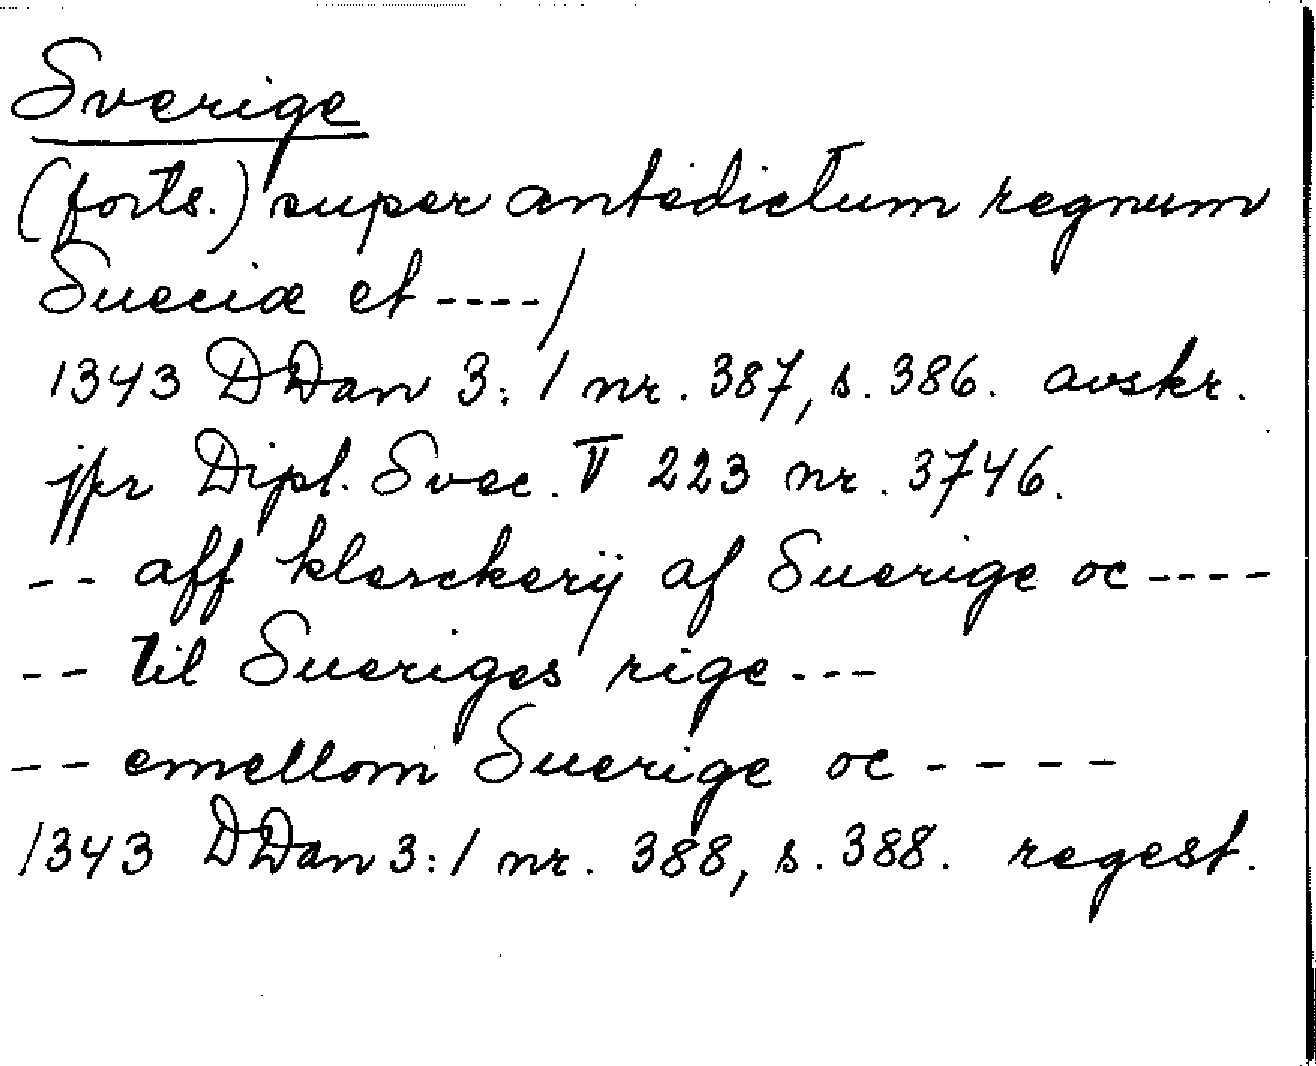 Sverige
(forts.) super antedictum regnum
Sueciæ et ----/
1343 DDan 3:1 nr. 387, s. 386. avskr.
jfr Dipl. Svec. V 223 nr. 3746.
-- aff klerckerij af Suerige oc ----
-- til Sueriges rige ---
-- emellom Suerige oc ----
1343 DDan 3:1 nr. 388, s. 388. regest.